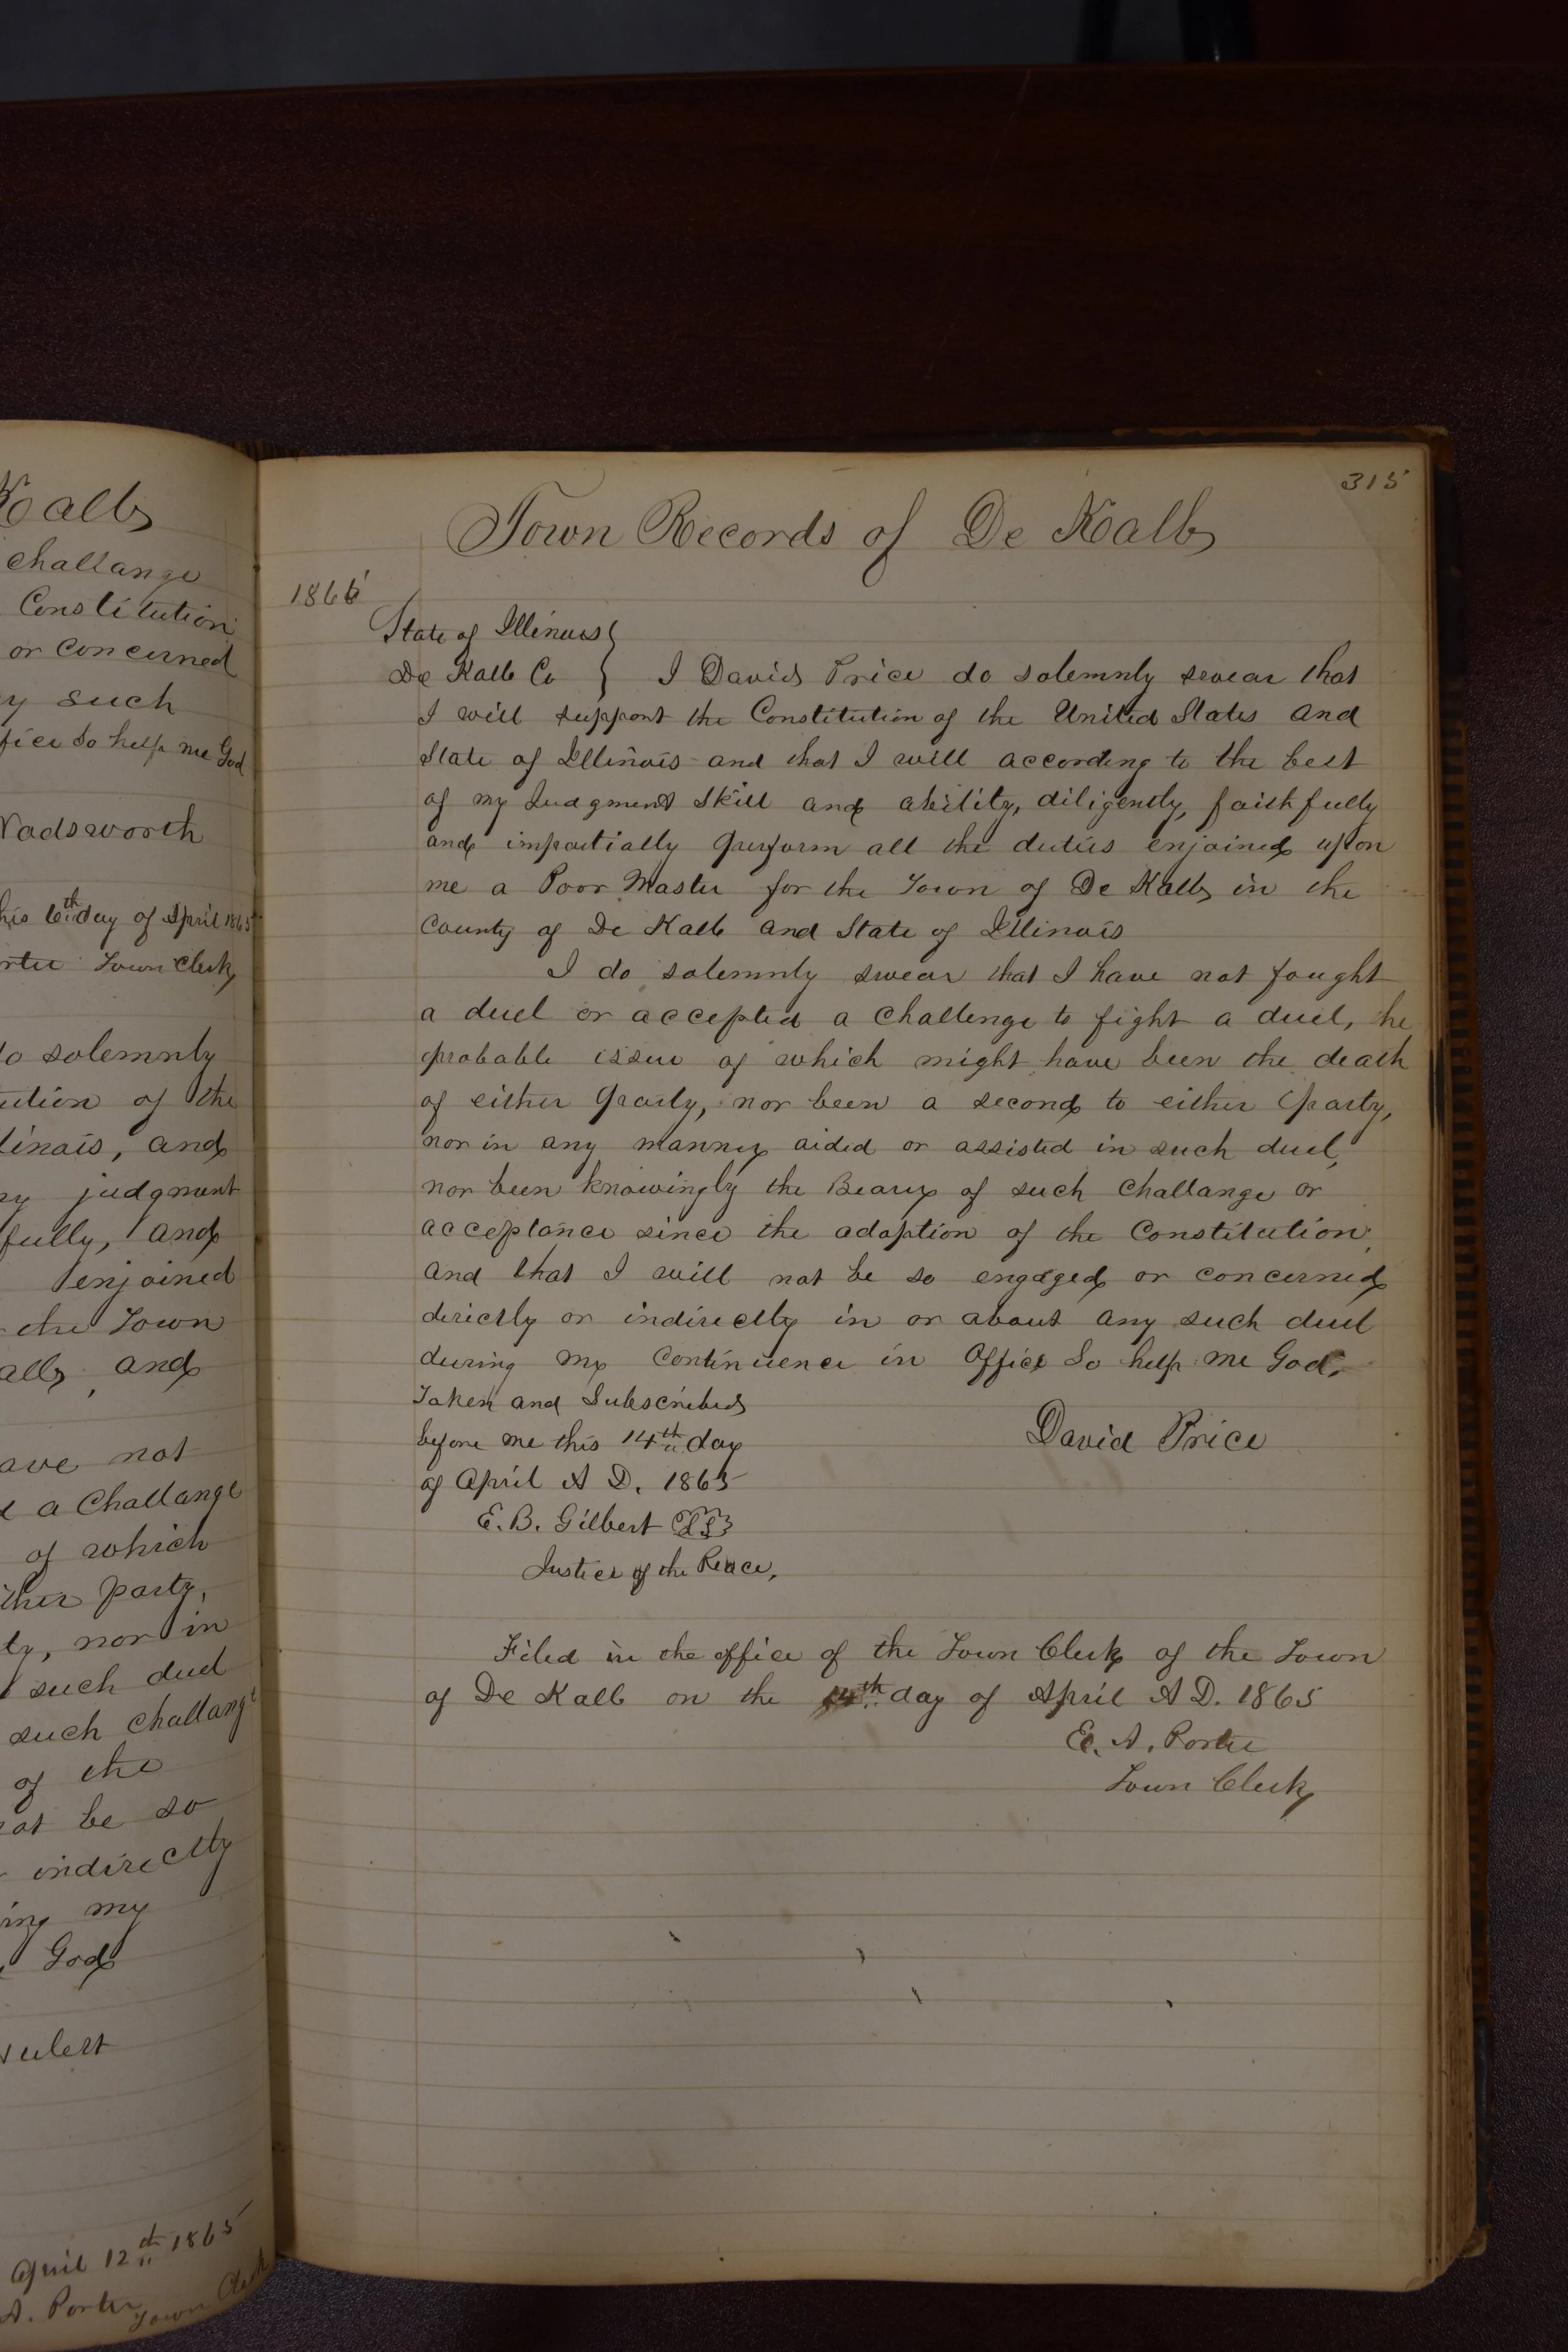 Kalb
challange
Constitution
or concerned
y such
fice So help me God
Wadsworth
his 6th day of April 1865
rter Town Clerk
do solemnly
ution of the
linois, and
my judgment
fully, and
enjoined
the Town
alb, and
ave not
a Challange
of which
ther party,
ty, nor in
such duel
such challange
of the
not be so
indirectly
ing my
God
April 12th 1865
A. Porter Town Clerk
315
Town Records of De Kalb
1865
State of Illinois }
De Kalb Co } I David Price do solemnly swear that
I will support the Constitution of the United States and
State of Illinois and that I will according to the best
of my Judgment Skill and ability, diligently, faithfully
and impartially perform all the duties enjoined upon
me a Poor Master for the Town of De Kalb in the
County of De Kalb and State of Illinois
I do solemnly swear that I have not fought
a duel or accepted a Challenge to fight a duel, he
probable issue of which might have been the death
of either party, nor been a second to either party,
nor in any manner aided or assisted in such duel,
nor been knowingly the Bearer of such Challange or
acceptance since the adoption of the Constitution,
and that I will not be so engaged or concerned
directly or indirectly in or about any such duel
during my Continuence in Office So help me God.
Taken and Subscribed
before me this 14th day
of April A D. 1865
David Price
E. B. Gilbert L S
Justice of the Peace,
Filed in the office of the Town Clerk of the Town
of De Kalb on the 14th day of April A D. 1865
E. A. Porter
Town Clerk